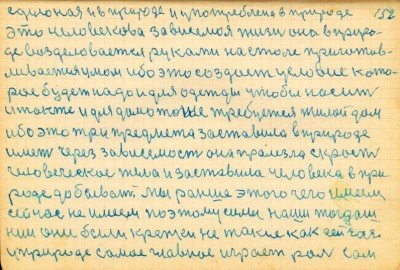 сделоная и в природе и употреблена в природе 152
это человекова зависемоя жизн она в приро-
де возделовается руками на столе приготов-
ливается углом ибо это создает условие кото-
рое будет надо и для одежды чтобы насит
и также и для дома тоже требуется жилой дом
ибо это три предмета заставила в природе
имет через зависемость она скрость
человеческое тела и заставила человека в при
роде добыват. Мы раньше этого чего имеем
сейчас не имеем поэтому силы наши тогдаш
нии они были крепки не такие как сейчас
у природе самое главное играет рол сам